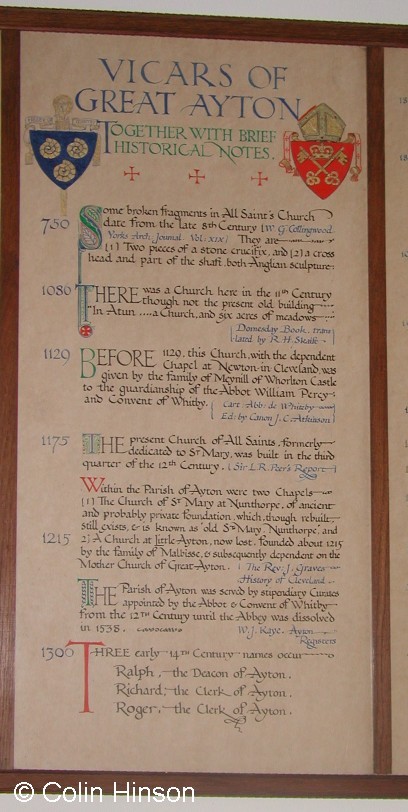 VICARS OF
GREAT AYTON
TOGETHER WITH BRIEF
HISTORICAL NOTES.
750 Some broken fragments in All Saint's Church
date from the late 8th Century [W. G. Collingwood
Yorks Arch Journal Vol: XIX] They are
[1] Two pieces of a stone crucifix, and [2] a cross
head and part of the shaft, both Anglian sculpture.
1086 THERE was a Church here in the 11th Century
though not the present old building
"In Atun ....a Church, and six acres of meadows"
[Domesday Book. trans
lated by R. H. Skaife]
1129 BEFORE 1129, this Church, with the dependent
Chapel at Newton-in-Cleveland, was
given by the family of Meynill of Whorlton Castle
to the guardianship of the Abbot William Percy
and Convent of Whitby. [Cart. Abb: de Whiteby
Ed: by Canon J. C. Atkinson]
1175 THE present Church of All Saints, formerly
dedicated to St Mary, was built in the third
quarter of the 12th Century. [Sir L. R. Peer's Report]
Within the Parish of Ayton were two Chapels
[1] The Church of St Mary at Nunthorpe, of ancient
and probably private foundation, which, though rebuilt,
still exists, & is known as 'old St Mary', Nunthorpe, and
1215 2] A Church at little Ayton, now lost, founded about 1215
by the family of Malbisse, & subsequently dependent on the
Mother Church of Great Ayton. [The Rev: J. Graves
History of Cleveland
THE Parish of Ayton was served by stipendiary Curates
appointed by the Abbot & Convent of Whitby
from the 12TH Century until the Abbey was dissolved
in 1538. W. J. Kaye. Ayton
Registers
1300 THREE early 14TH Century names occur
Ralph, the Deacon of Ayton.
Richard, the Clerk of Ayton.
Roger, the Clerk of Ayton.
© Colin Hinson